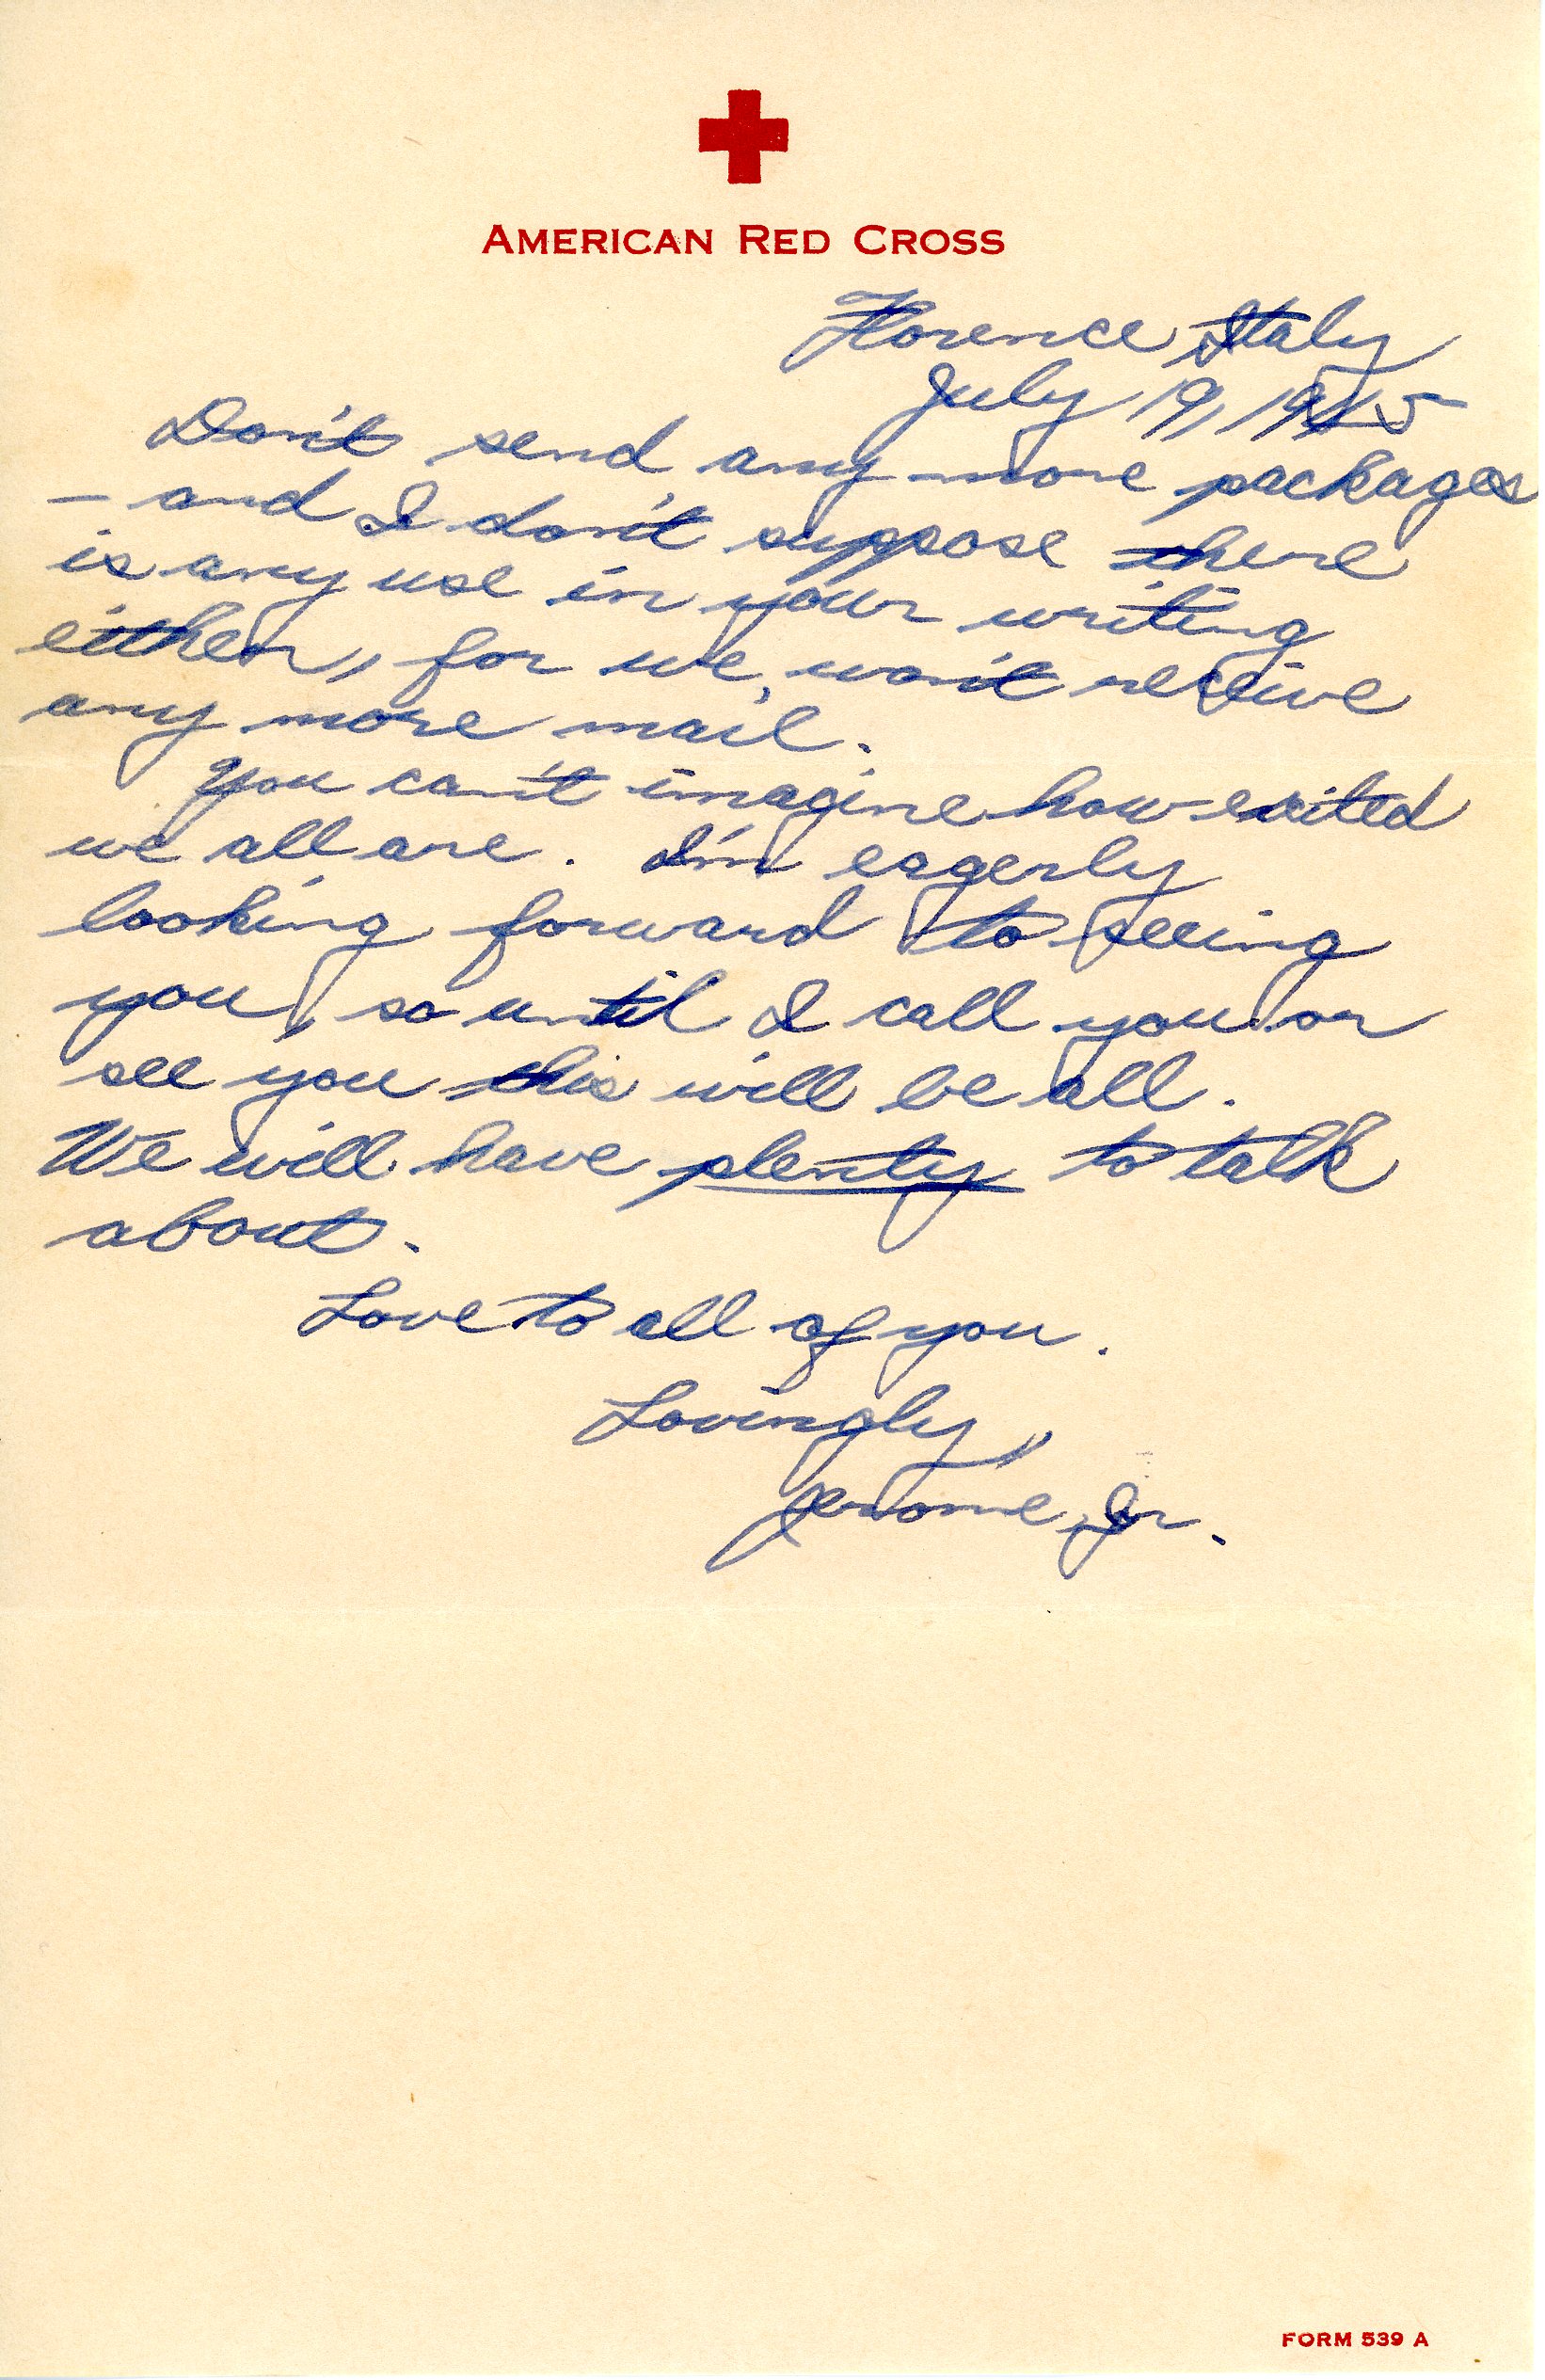 AMERICAN RED CROSS
Florence, Italy
July 19, 1945
Don't send any more packages
– and I don't suppose there
is any use in your writing
either, for we won't receive
any more mail.
You can't imagine how exited
we all are. I'm eagerly
looking forward to seeing
you, so until I call you or
see you this will be all.
We will have plenty to talk
about.
Love to all of you.
Lovingly,
Jerome, Jr.
FORM 539 A